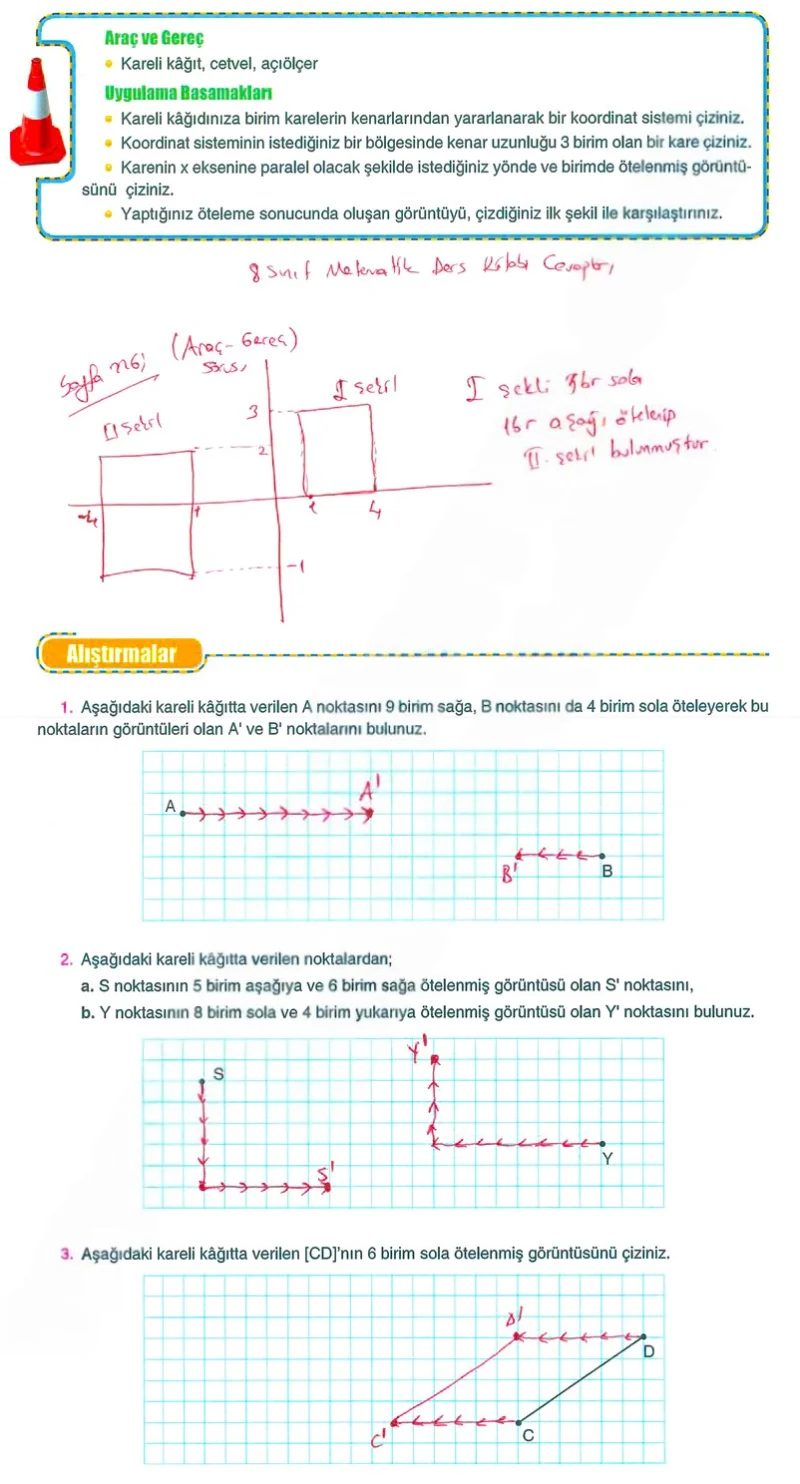 Araç ve Gereç
• Kareli kâğıt, cetvel, açıölçer
Uygulama Basamakları
• Kareli kâğıdınıza birim karelerin kenarlarından yararlanarak bir koordinat sistemi çiziniz.
• Koordinat sisteminin istediğiniz bir bölgesinde kenar uzunluğu 3 birim olan bir kare çiziniz.
• Karenin x eksenine paralel olacak şekilde istediğiniz yönde ve birimde ötelenmiş görüntü-
sünü çiziniz.
• Yaptığınız öteleme sonucunda oluşan görüntüyü, çizdiğiniz ilk şekil ile karşılaştırınız.
8 Sınıf Matematik Ders Kitabı Cevapları
(Araç-Gereç)
Sayfa 116)
sorusu
I şekil
I şekli 3br sola
3
1br aşağı ötelenip
II şekil
2
II. şekil bulunmuştur.
-4
1
1
4
-1
Alıştırmalar
1. Aşağıdaki kareli kâğıtta verilen A noktasını 9 birim sağa, B noktasını da 4 birim sola öteleyerek bu
noktaların görüntüleri olan A' ve B' noktalarını bulunuz.
A'
A
B'
B
2. Aşağıdaki kareli kâğıtta verilen noktalardan;
a. S noktasının 5 birim aşağıya ve 6 birim sağa ötelenmiş görüntüsü olan S' noktasını,
b. Y noktasının 8 birim sola ve 4 birim yukarıya ötelenmiş görüntüsü olan Y' noktasını bulunuz.
Y'
S
Y
S'
3. Aşağıdaki kareli kâğıtta verilen [CD]'nın 6 birim sola ötelenmiş görüntüsünü çiziniz.
D'
D
C'
C